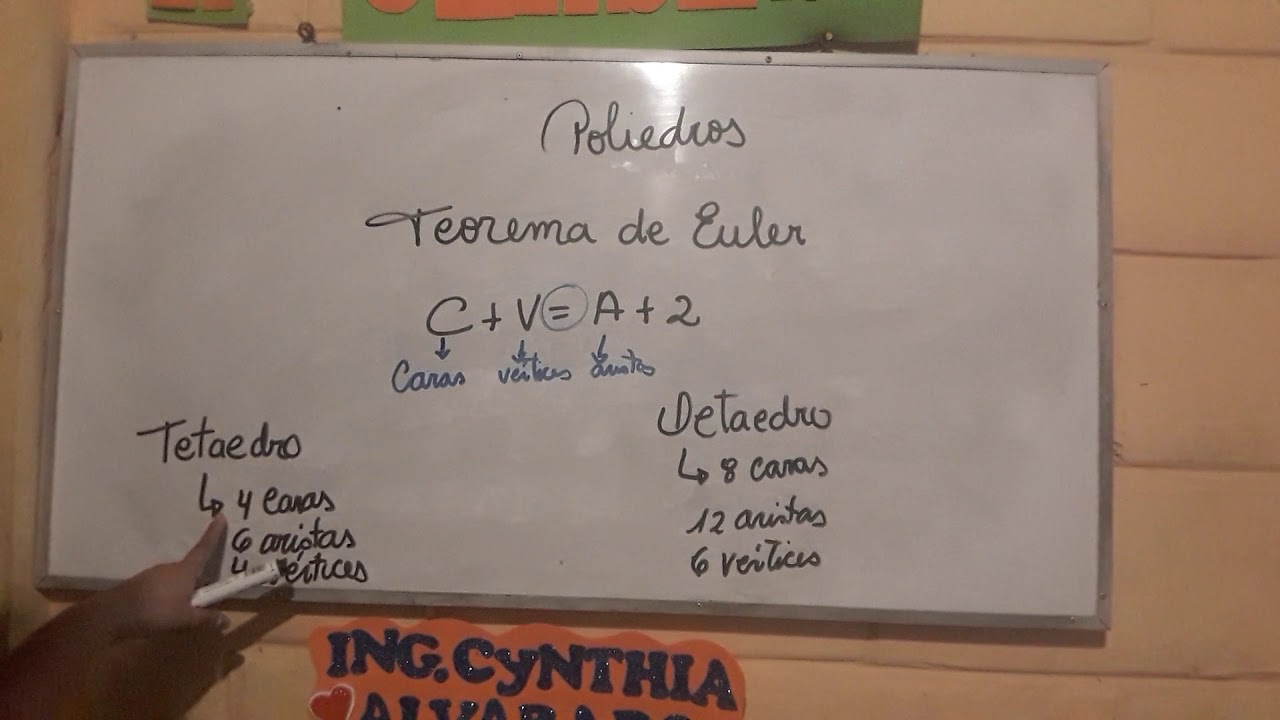 Poliedros
Teorema de Euler
C + V = A + 2
Caras vértices aristas
Tetaedro
↳ 4 caras
6 aristas
4 vértices
Octaedro
↳ 8 caras
12 aristas
6 vértices
ING. CyNTHIA